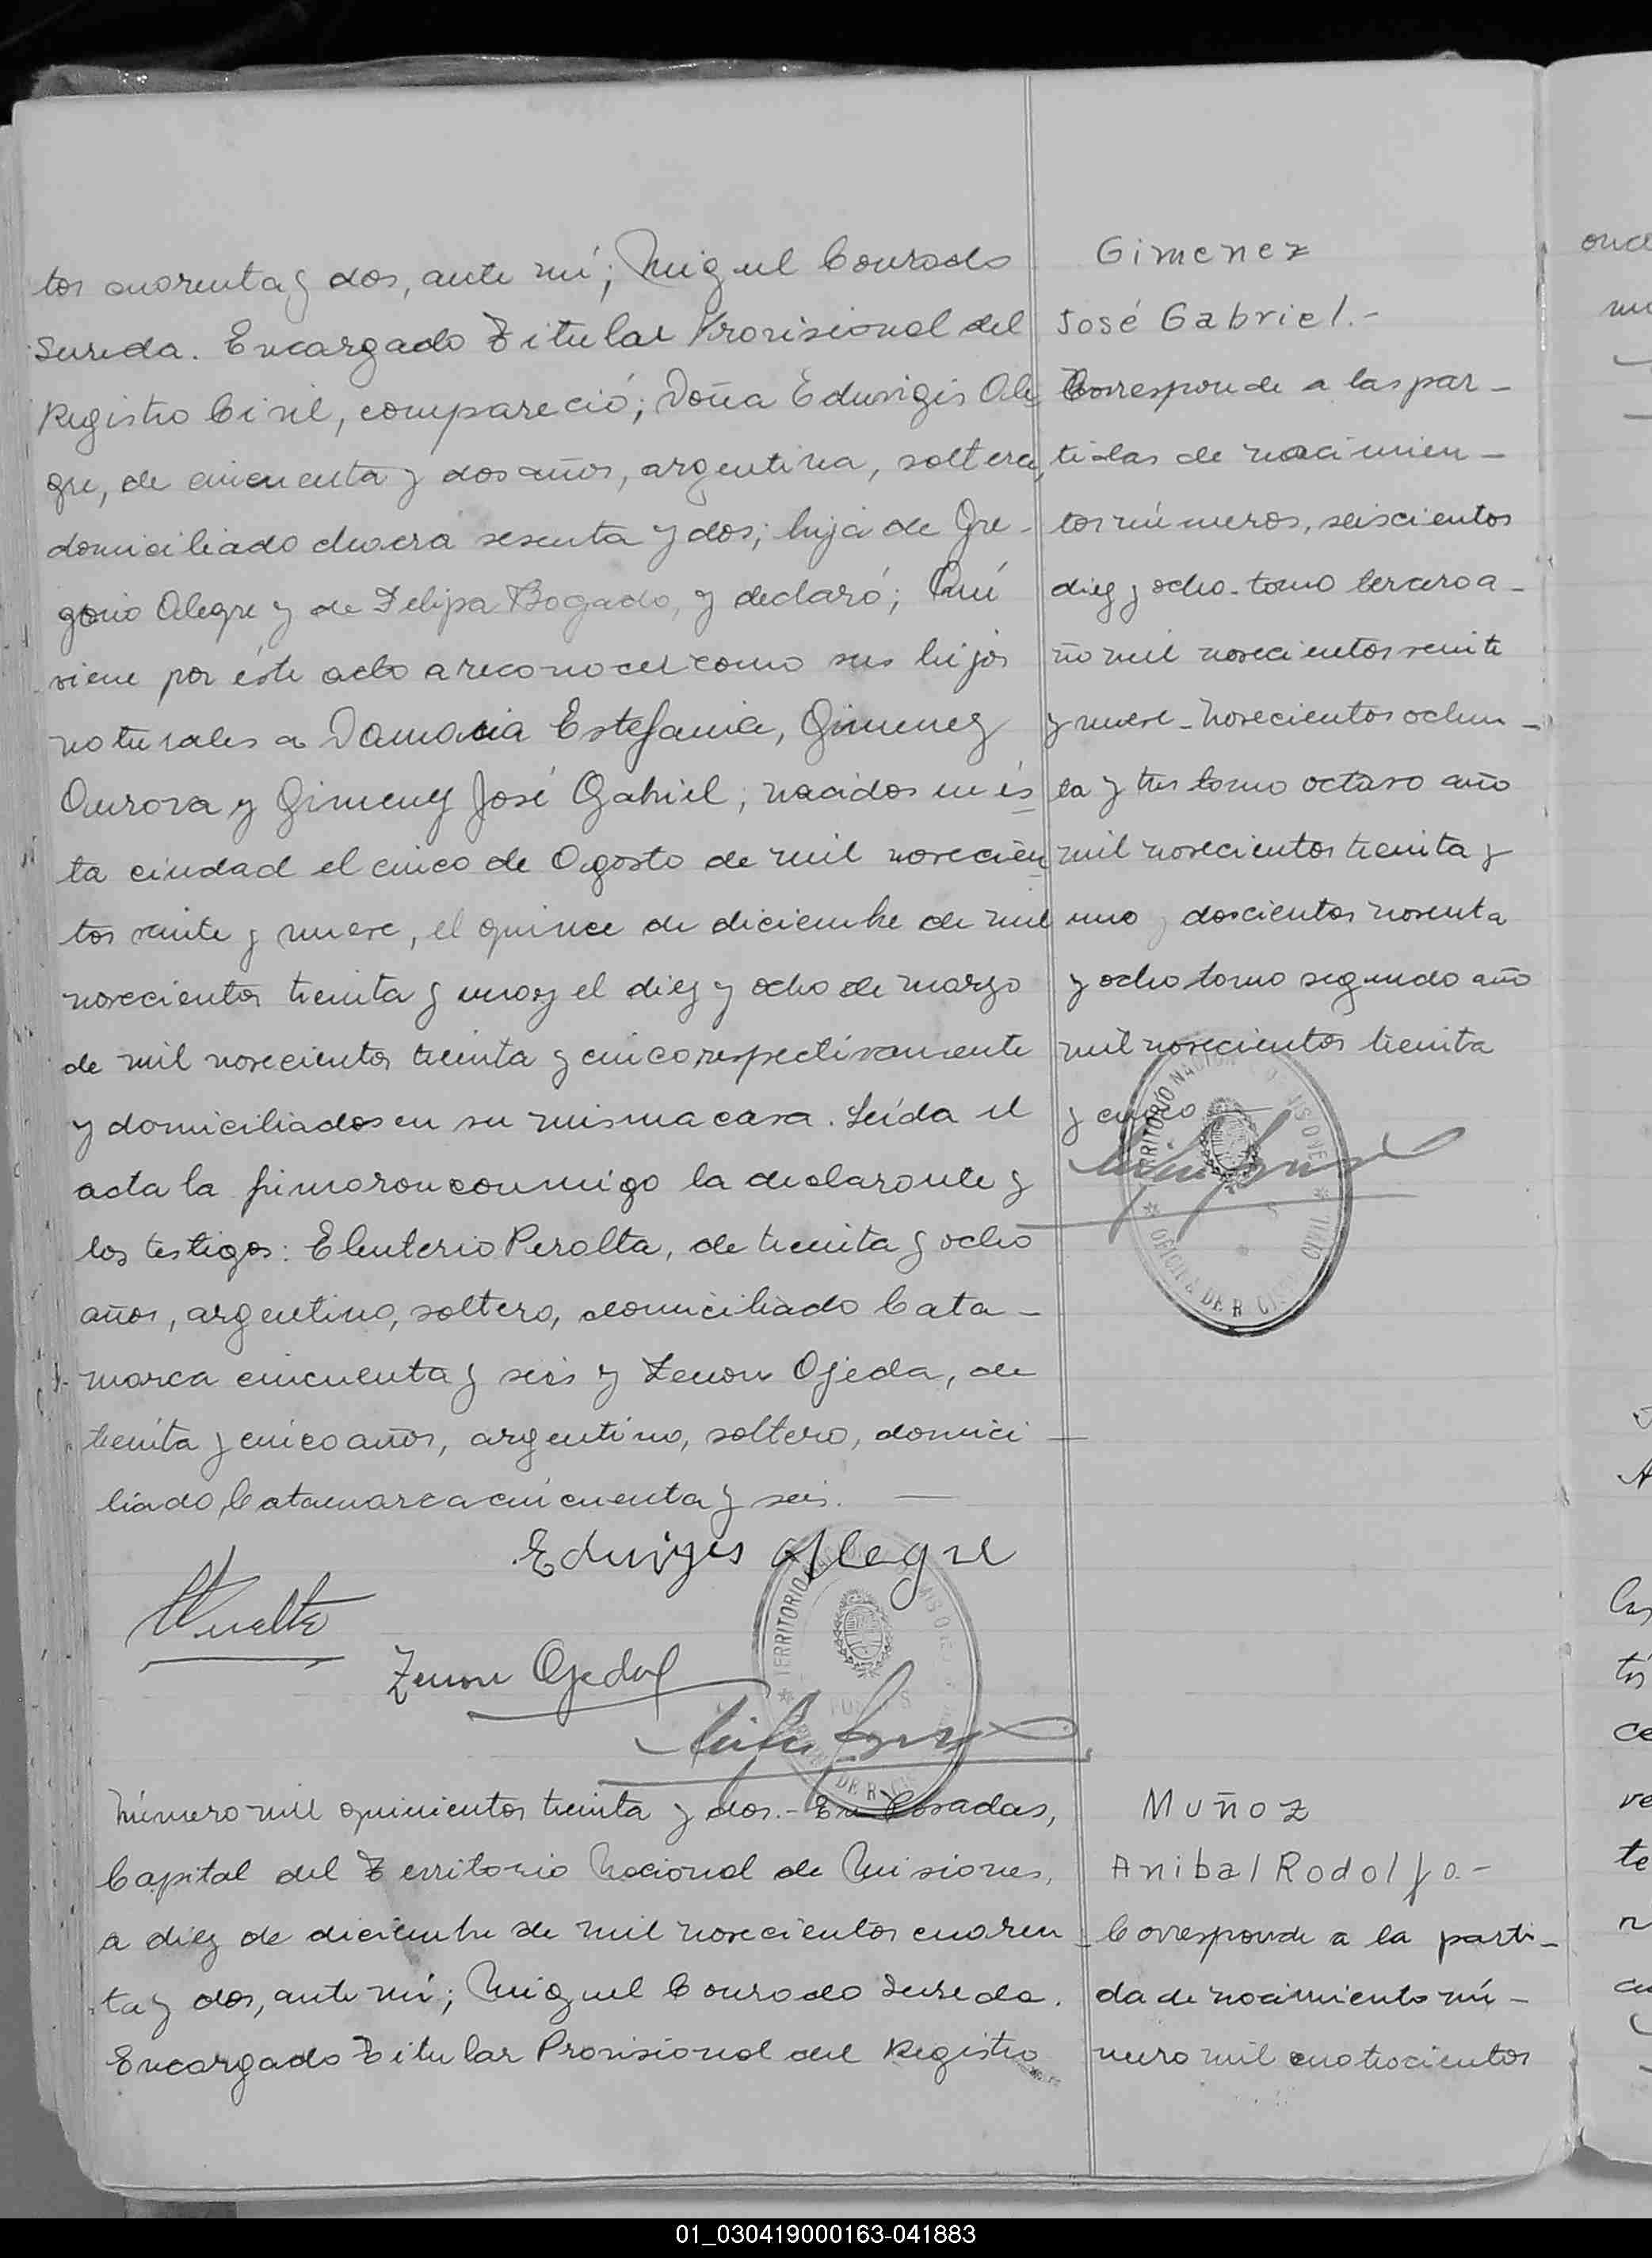 tos cuarenta y dos, ante mí; Miguel Conrado
Sureda. Encargado Titular Provisional del
Registro Civil, compareció; Doña Eduvigis Ale
gre, de cincuenta y dos años, argentina, soltera,
domiciliado chacra sesenta y dos; hija de Gre-
gorio Alegre y de Felipa Bogado, y declaró; Que
viene por éste acto a reconocer como sus hijos
naturales a Damacia Estefania, Gimenez
Aurora y Gimenez José Gabriel; nacidos en és
ta ciudad el cinco de Agosto de mil novecien
tos veinte y nueve, el quince de diciembre de mil
novecientos treinta y uno y el diez y ocho de marzo
de mil novecientos treinta y cinco respectivamente
y domiciliados en su misma casa. Leída el
acta la firmaron conmigo la declarante y
los testigos: Eleuterio Peralta, de treinta y ocho
años, argentino, soltero, domiciliado Cata-
marca cincuenta y seis y Zenon Ojeda, de
treinta y cinco años, argentino, soltero, domici
liado Catamarca cincuenta y seis.
Gimenez
José Gabriel.-
Corresponde a las par-
tidas de nacimien-
tos números, seiscientos
diez y ocho - tomo tercero a-
ño mil novecientos veinte
y nueve - Novecientos ochen-
ta y tres tomo octavo año
mil novecientos treinta y
uno, doscientos noventa
y ocho tomo segundo año
mil novecientos treinta
y cinco
TERRITORIO NACIONAL DE MISIONES
OFICINA DE R. CIVIL
Eduviges Alegre
Zenon Ojeda
TERRITORIO
POSADAS
DE R. C
Número mil quinientos treinta y dos.- En Posadas,
Capital del Territorio Nacional de Misiones,
a diez de diciembre de mil novecientos cuaren
ta y dos, ante mí; Miguel Conrado Sureda.
Encargado Titular Provisional del Registro
Muñoz
Anibal Rodolfo.-
Corresponde a la parti-
da de nacimiento nú-
mero mil cuatrocientos
01_030419000163-041883